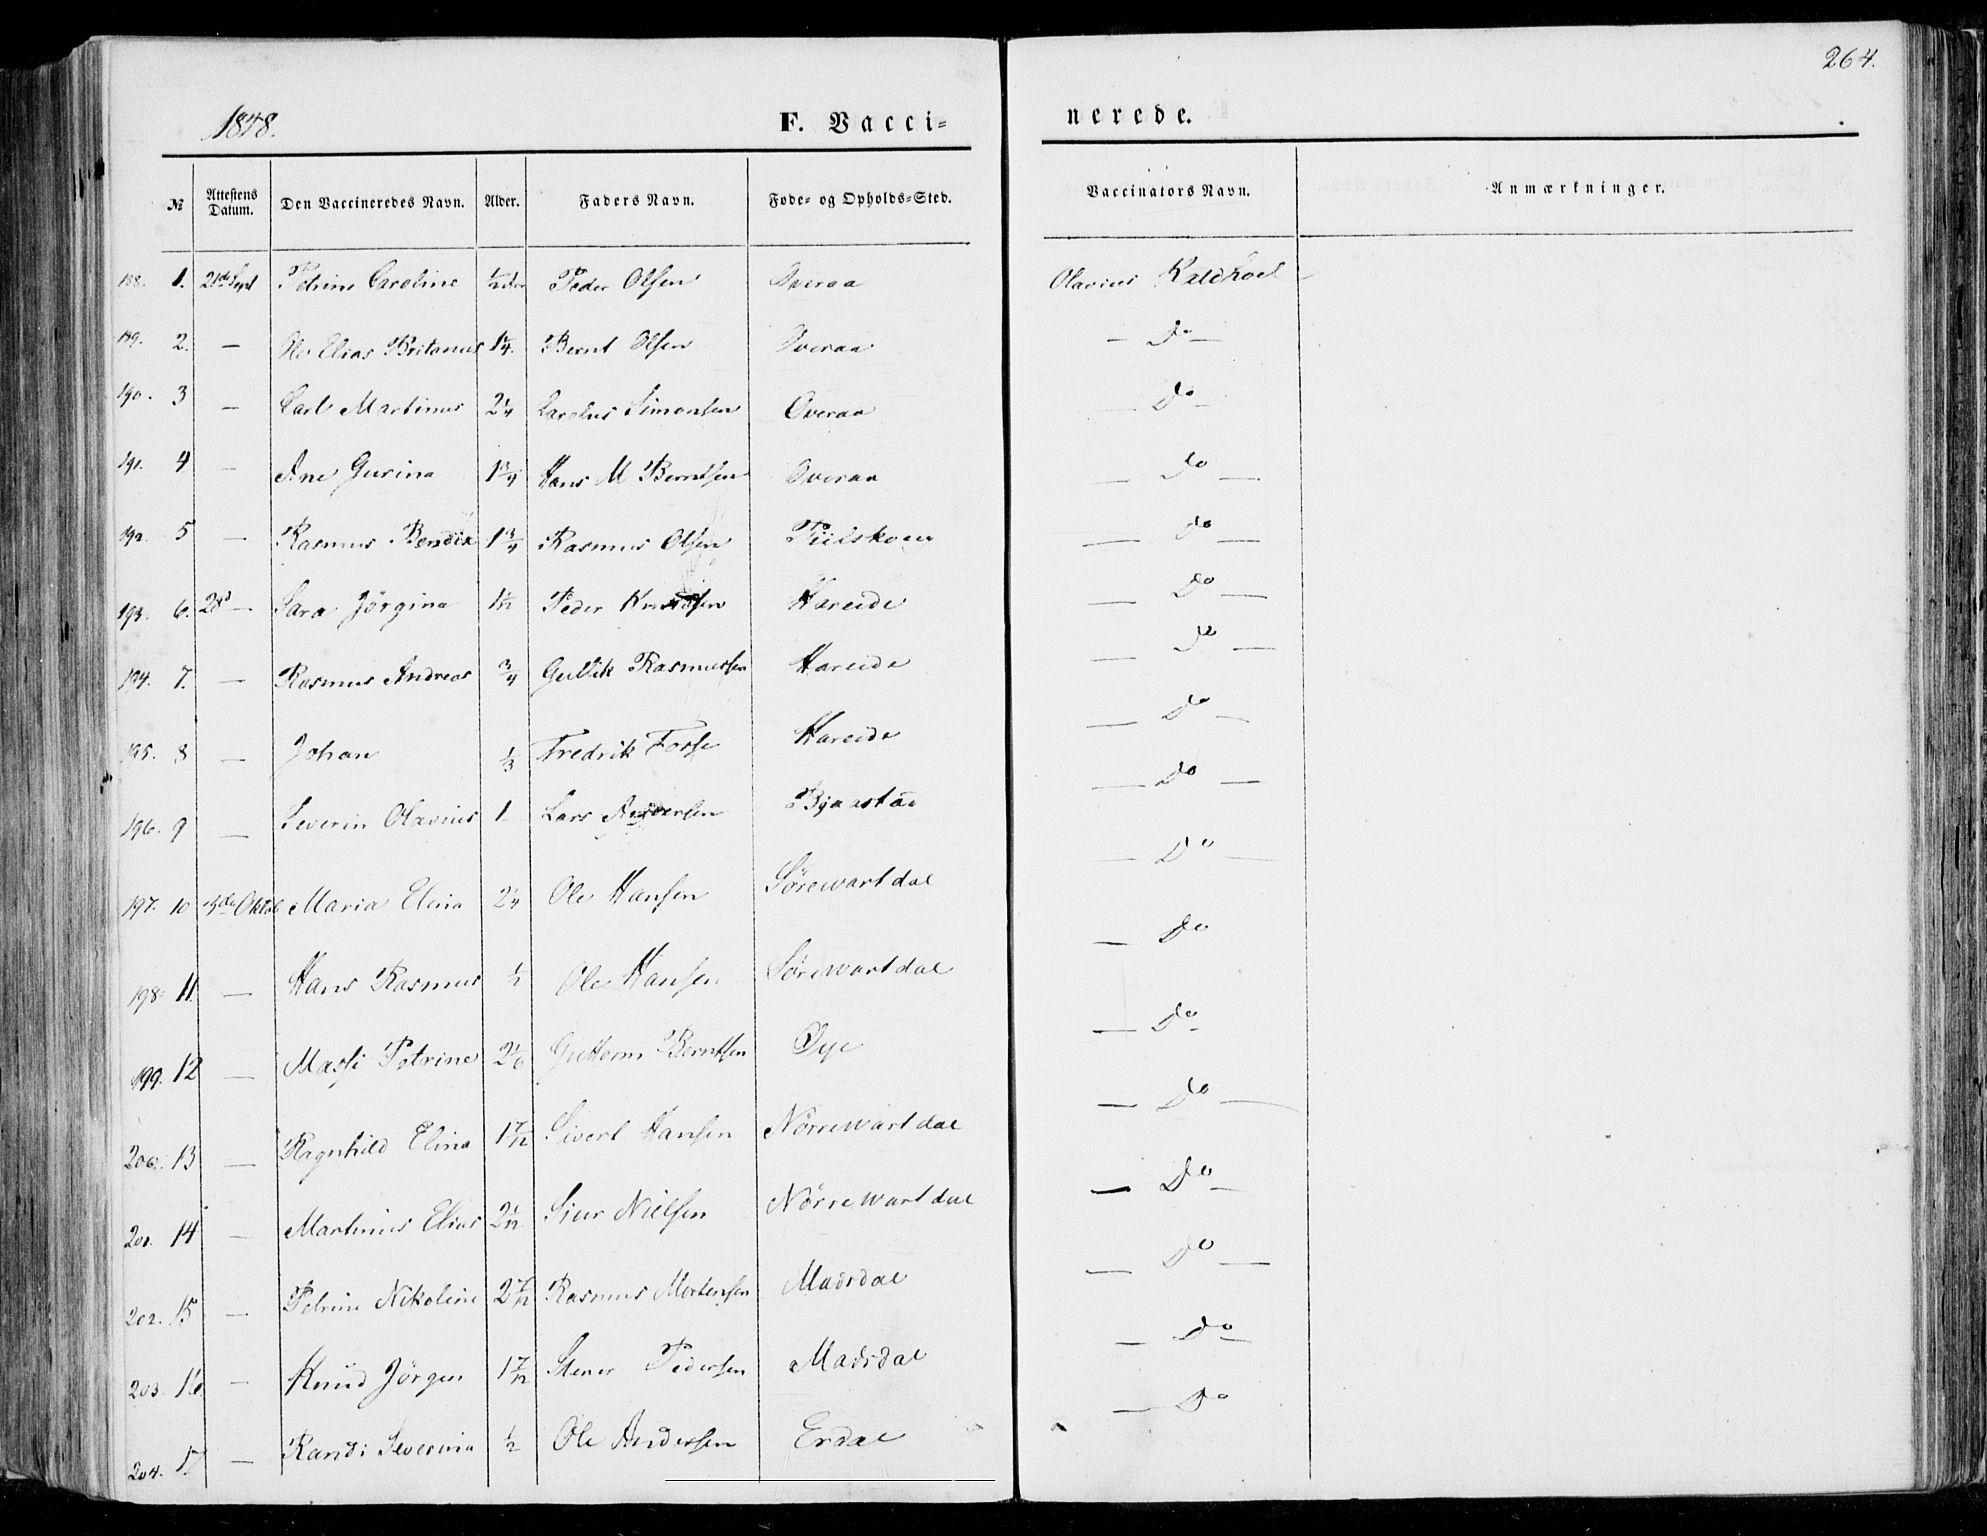 264.
1848. F. Vacci- nerede.
№ Attestens Datum. Den Vaccineredes Navn. Alder. Faders Navn. Føde- og Opholds-Sted. Vaccinators Navn. Anmærkninger.
188. 1. 21de Sept Petrine Caroline Peder Olsen Overaa Olavius Kaldhoel
189. 2. — Ole Elias Britanus 1 1/4. Bernt Olsen Overaa — Do —
190. 3 — Carl Martinus 2 1/4 Carolus Simonsen Overaa — Do —
191. 4 — Ane Gurina 1 3/4 Hans M Berntsen Overaa — Do —
192. 5 — Rasmus Bendix 1 3/4 Rasmus Olsen — Do —
193. 6. 28d — Sara Jörgina 1 1/12 Peder Knudsen Hareide — Do —
194. 7. — Rasmus Andreas 3/4 Gullik Rasmussen Hareide — Do —
195. 8 — Johan 1/3 Fredrik Fosse Hareide — Do —
196. 9 — Severin Olavius 1 Lars Andersen Bjaastad — Do —
197. 10 3de Oktob Maria Elina 2 1/4 Ole Hansen Sørewartdal — Do —
198. 11. — Hans Rasmus 1/2 Ole Hansen Sørewartdal — Do
199. 12 — Massi Petrine 2 1/6 Guttorm Berntsen Øye — Do —
200. 13 — Ragnhild Elina 1 7/12 Sivert Hansen Nørrewartdal — Do —
201. 14 — Martinus Elias 2 1/12 Siur Nielsen Nørrewartdal — Do —
202. 15 — Petrine Nikoline 2 7/12 Rasmus Mortensen Madsdal — Do —
203. 16. — Knud Jörgen 1 7/12 Stener Pedersen Madsdal — Do —
204. 17. — Randi Severina 1/2 Ole Andersen Erdal — Do